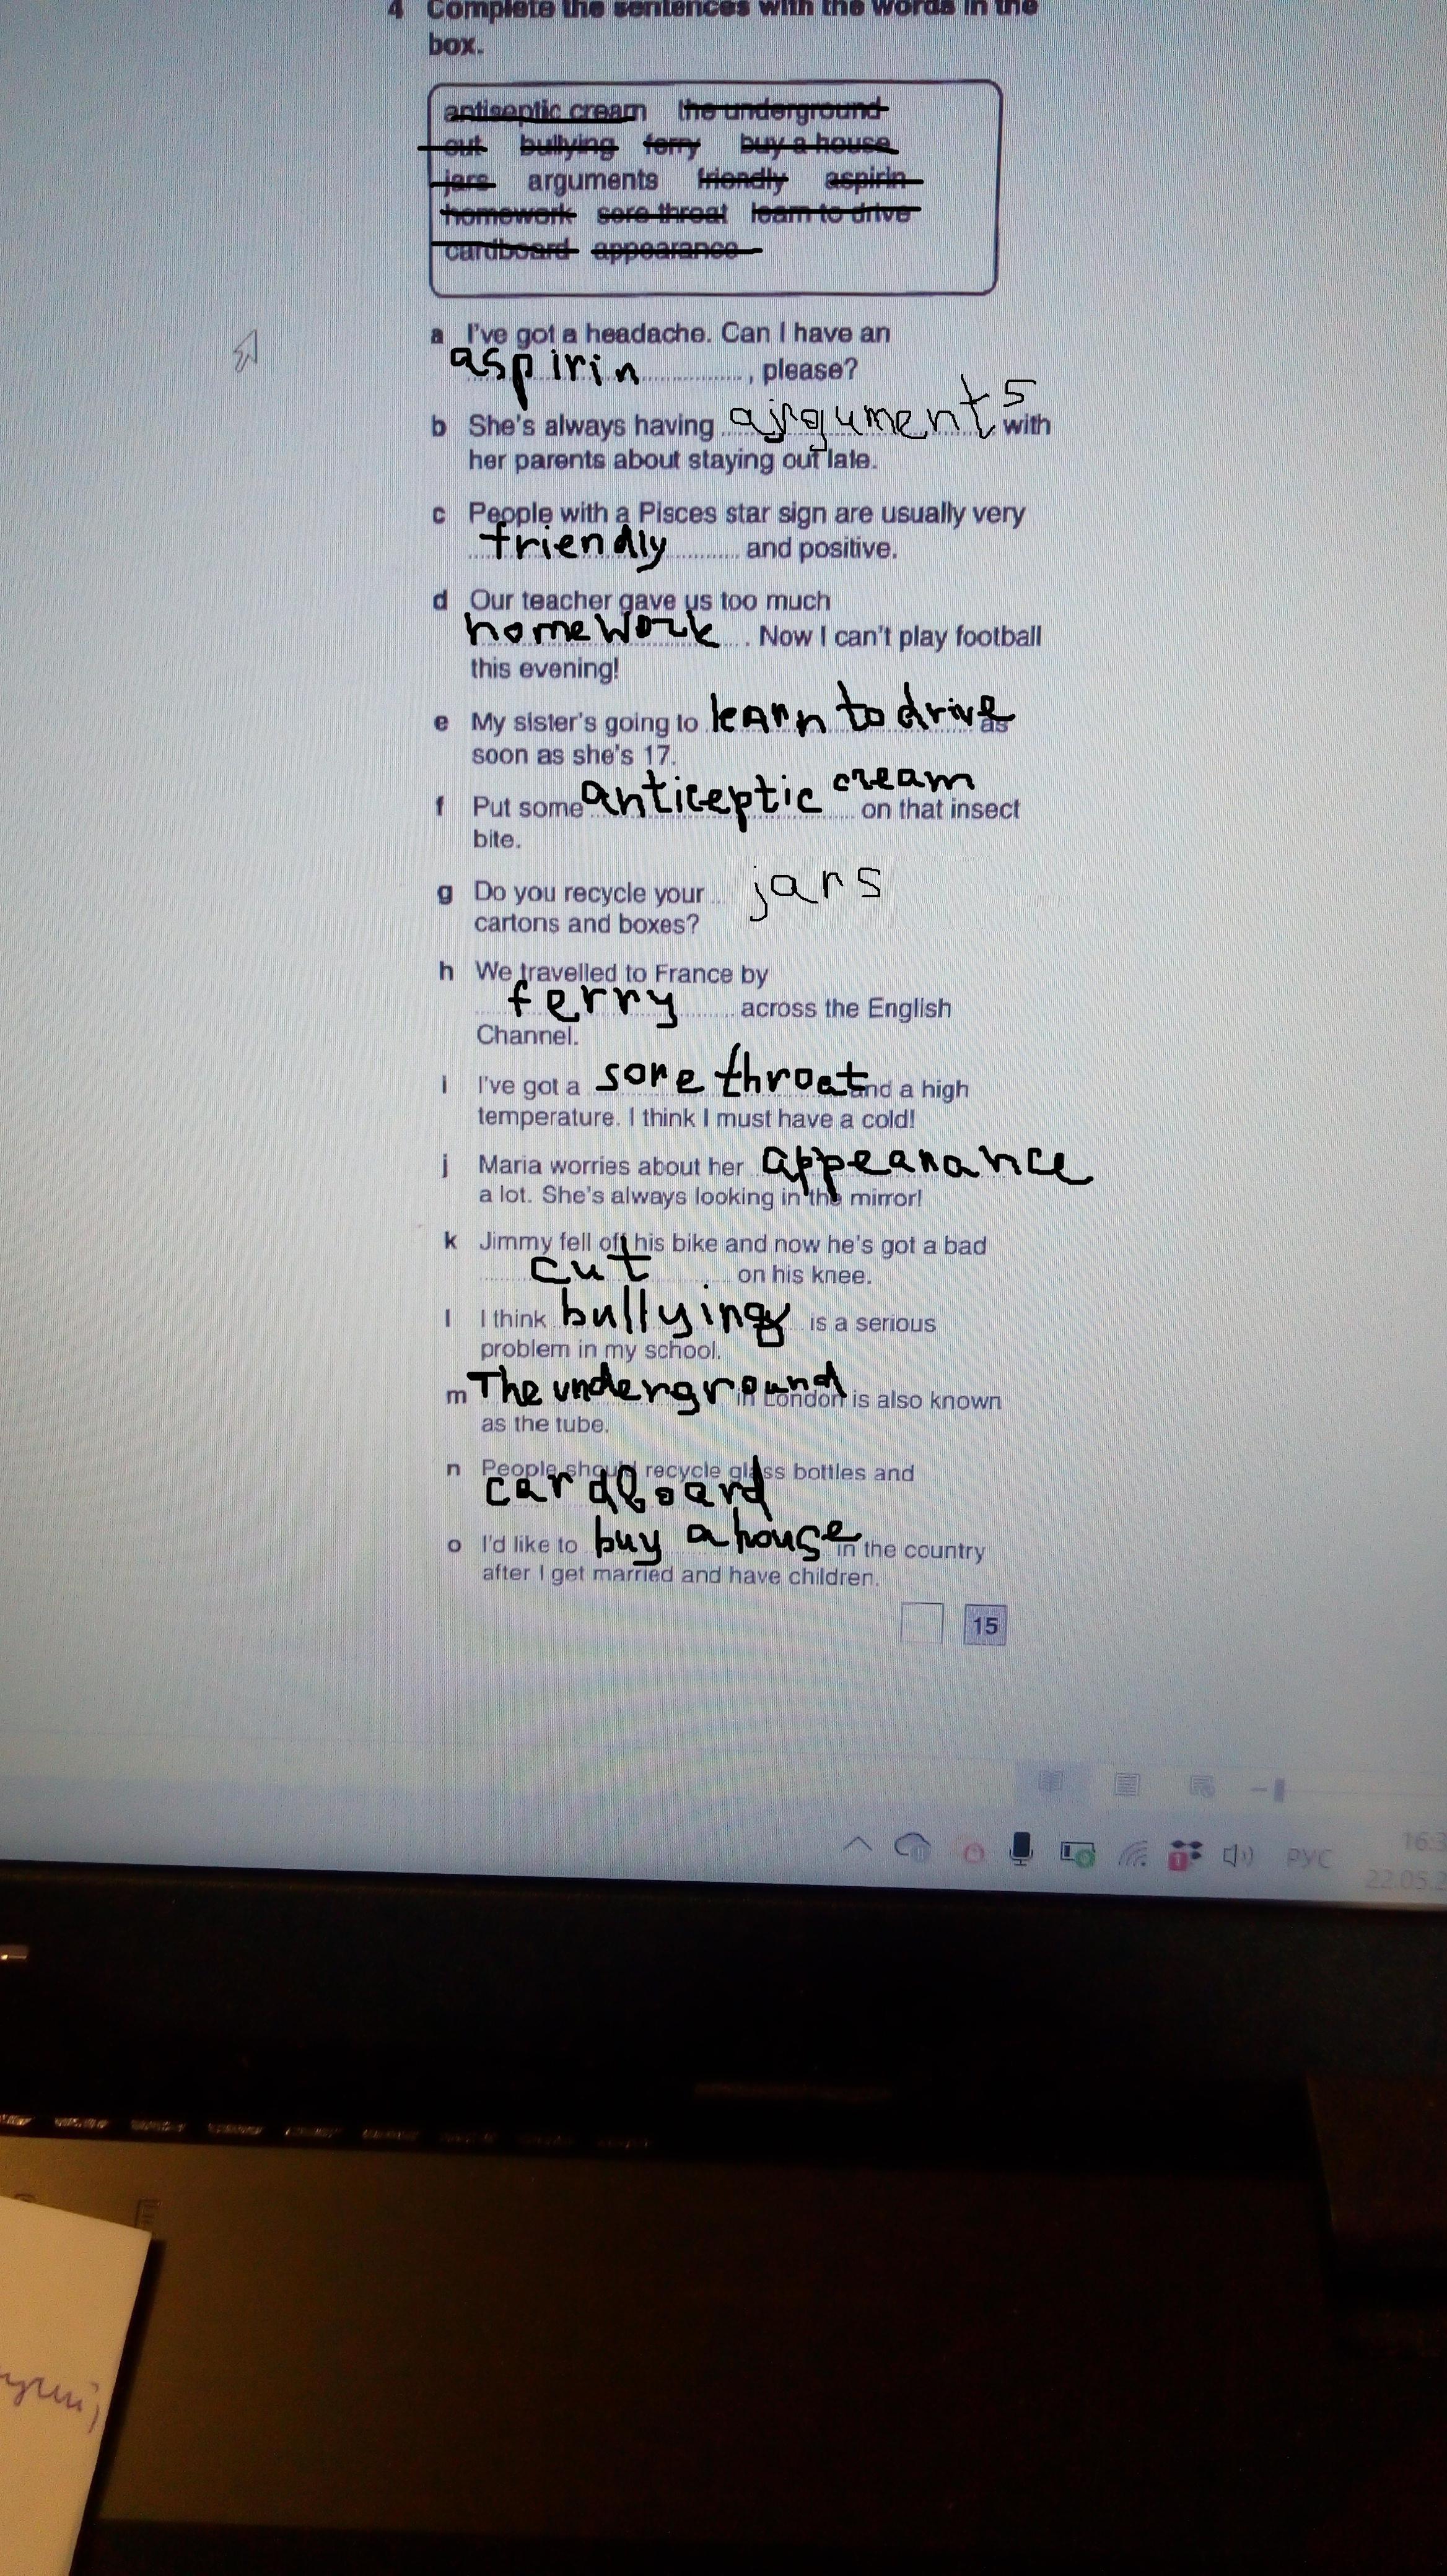 4 Complete the sentences with the words in the
box.
antiseptic cream the underground
cut bullying ferry buy a house
jars arguments friendly aspirin
homework sore throat learn to drive
cardboard appearance
a I've got a headache. Can I have an
aspirin , please?
b She's always having arguments with
her parents about staying out late.
c People with a Pisces star sign are usually very
friendly and positive.
d Our teacher gave us too much
homework . Now I can't play football
this evening!
e My sister's going to learn to drive as
soon as she's 17.
f Put some anticeptic cream on that insect
bite.
g Do you recycle your jars
cartons and boxes?
h We travelled to France by
ferry across the English
Channel.
i I've got a sore throat and a high
temperature. I think I must have a cold!
j Maria worries about her appearance
a lot. She's always looking in the mirror!
k Jimmy fell off his bike and now he's got a bad
cut on his knee.
l I think bullying is a serious
problem in my school.
m The underground in London is also known
as the tube.
n People should recycle glass bottles and
cardboard
o I'd like to buy a house in the country
after I get married and have children.
15
РУС